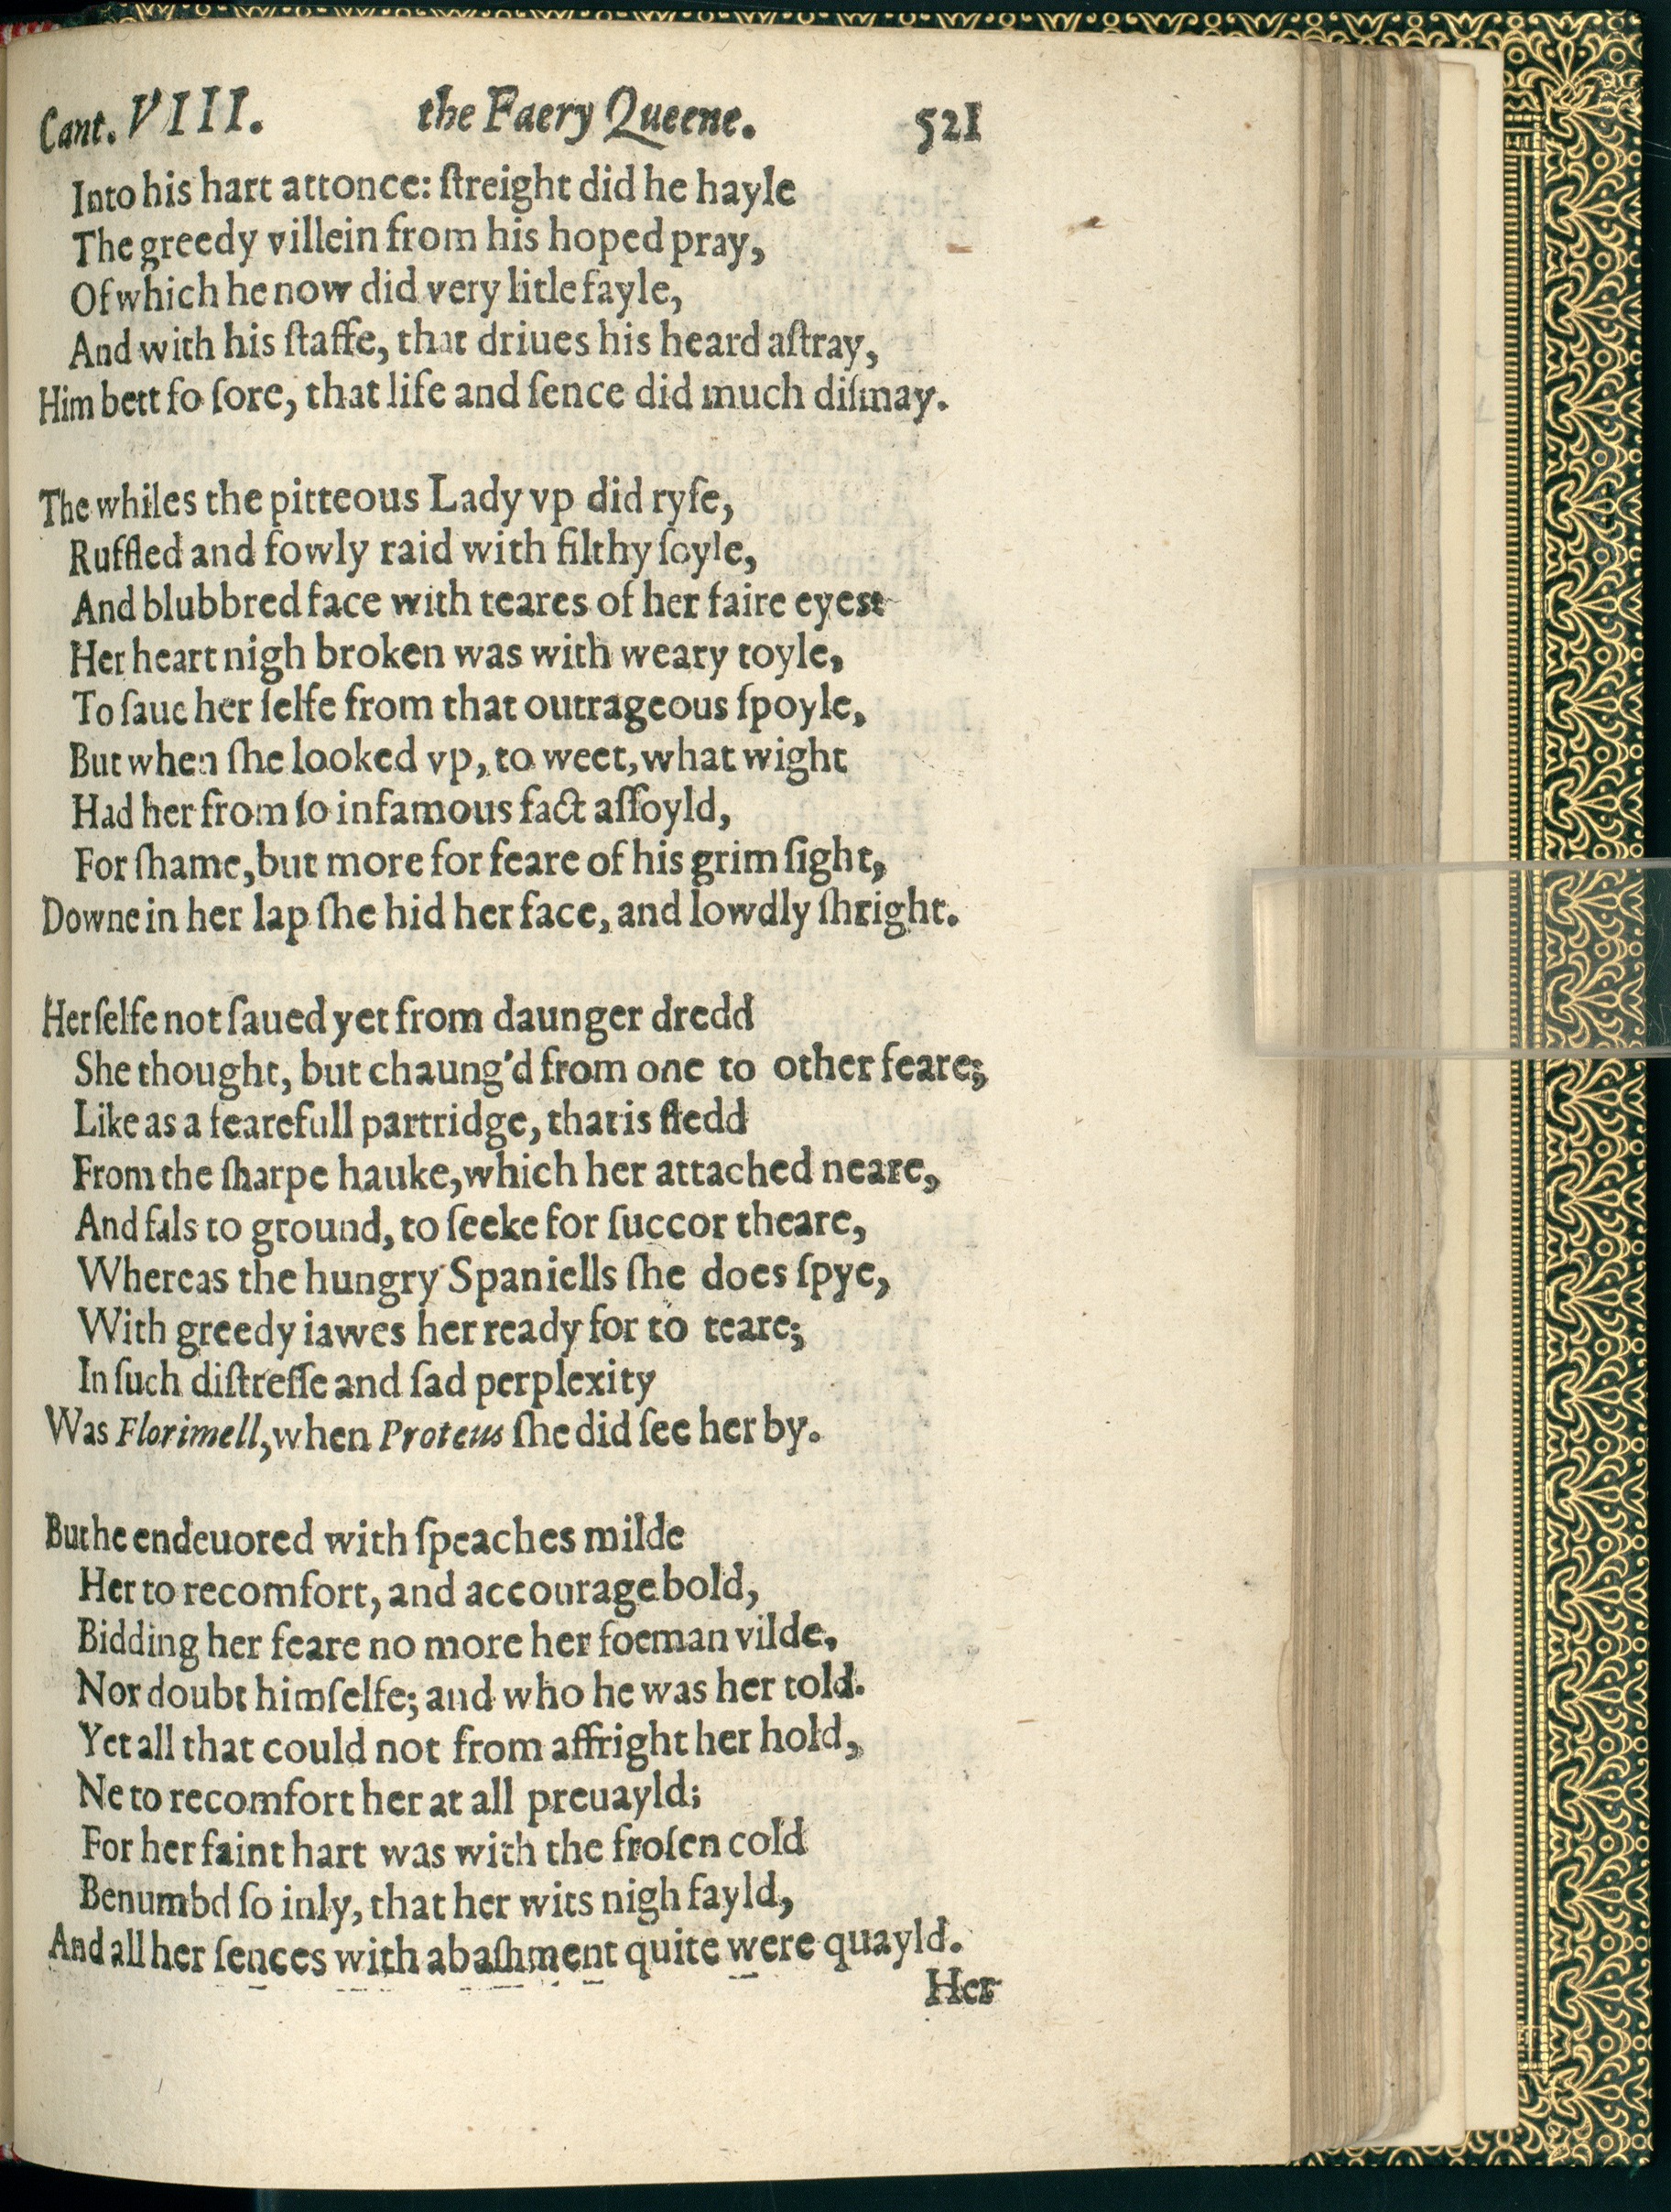 Cant. VIII. the Faery Queene. 521
Into his hart attonce: ſtreight did he hayle
The greedy villein from his hoped pray,
Of which he now did very litle fayle,
And with his ſtaffe, that driues his heard aſtray,
Him bett ſo ſore, that life and ſence did much diſmay.
The whiles the pitteous Lady vp did ryſe,
Ruffled and fowly raid with filthy ſoyle,
And blubbred face with teares of her faire eyes:
Her heart nigh broken was with weary toyle,
To ſaue her ſelfe from that outrageous ſpoyle,
But when ſhe looked vp, to weet, what wight
Had her from ſo infamous fact aſſoyld,
For ſhame, but more for feare of his grim ſight,
Downe in her lap ſhe hid her face, and lowdly ſhright.
Herſelfe not ſaued yet from daunger dredd
She thought, but chaung'd from one to other feare;
Like as a fearefull partridge, that is fledd
From the ſharpe hauke, which her attached neare,
And fals to ground, to ſeeke for ſuccor theare,
Whereas the hungry Spaniells ſhe does ſpye,
With greedy iawes her ready for to teare;
In ſuch diſtreſſe and ſad perplexity
Was Florimell, when Proteus ſhe did ſee her by.
But he endeuored with ſpeaches milde
Her to recomfort, and accourage bold,
Bidding her feare no more her foeman vilde,
Nor doubt himſelfe; and who he was her told.
Yet all that could not from affright her hold,
Ne to recomfort her at all preuayld;
For her faint hart was with the froſen cold
Benumbd ſo inly, that her wits nigh fayld,
And all her ſences with abaſhment quite were quayld.
Her